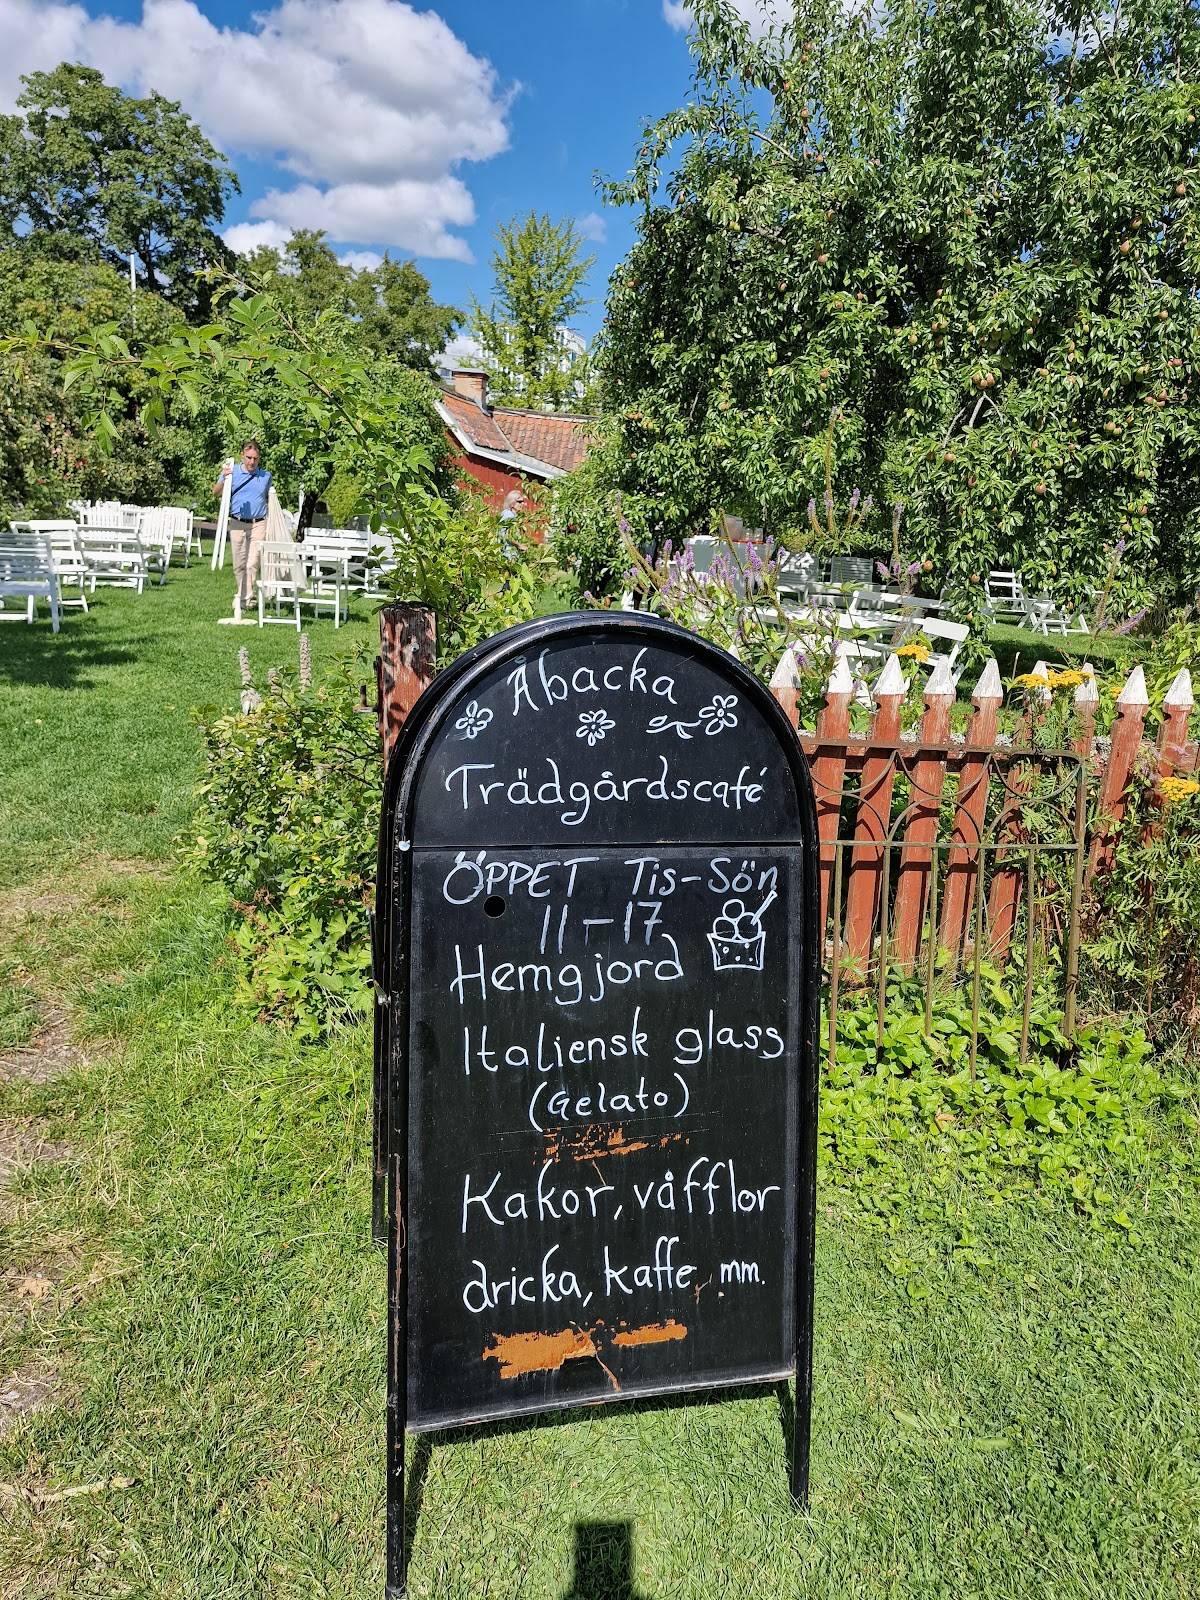 Åbacka
Trädgårdscafé
ÖPPET Tis-Sön
11-17
Hemgjord
Italiensk glass
(Gelato)
Kakor, våfflor
dricka, kaffe mm.